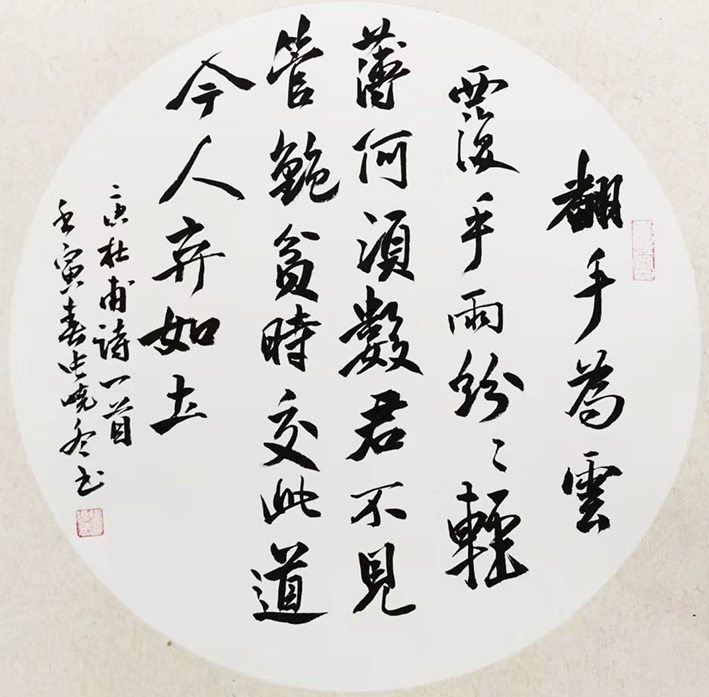 翻手為雲
覆手雨紛〻輕
薄何須數君不見
管鮑貧時交此道
今人弃如土
杜甫詩一首
壬寅春曉冬书